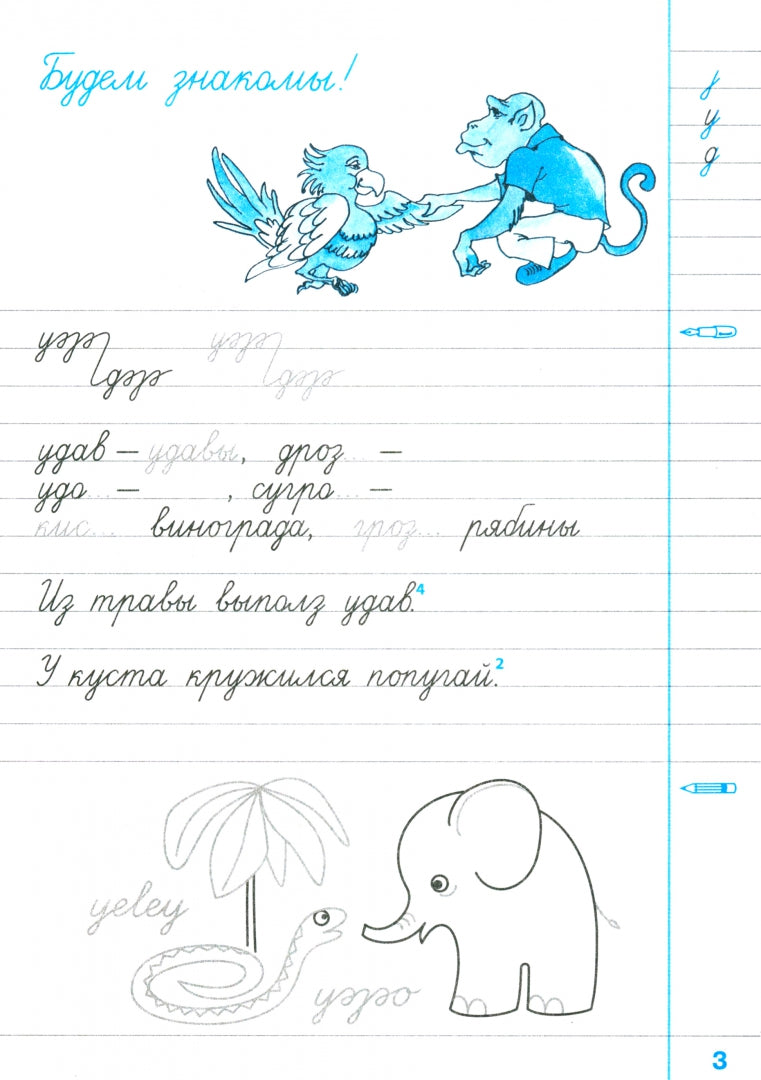 Будем знакомы!
у
д
удав — удавы, дроз... —
удо... — , сугро... —
кис... винограда, гроз... рябины
Из травы выполз удав.⁴
У куста кружился попугай.²
3